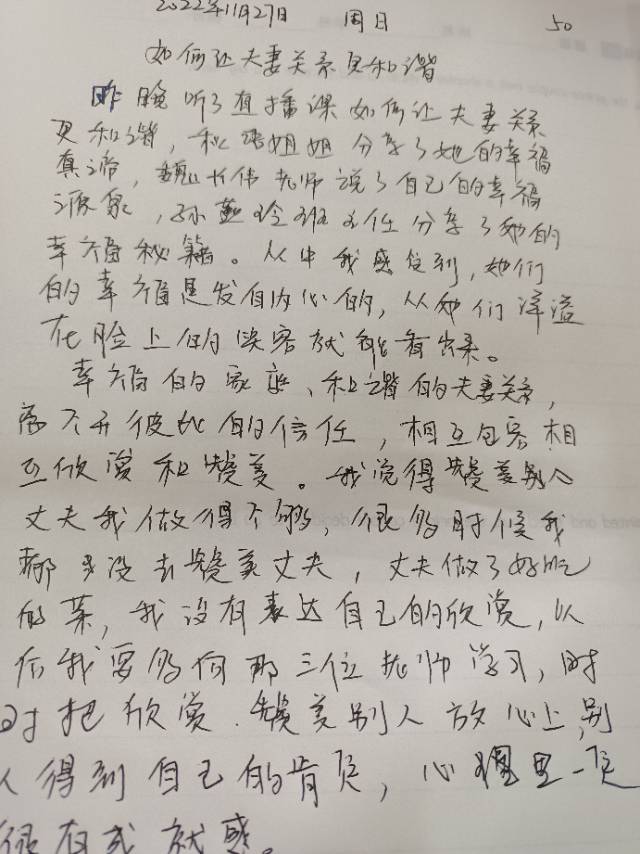 2022年11月27日 周日 50
如何让夫妻关系更和谐
昨晚听了直播课如何让夫妻关系
更和谐,秋语姐姐分享了她的幸福
真谛,魏长伟老师说了自己的幸福
源泉,孙燕玲班主任分享了她的
幸福秘籍。从中我感受到,她们
的幸福是发自内心的,从她们洋溢
在脸上的笑容就能看出来。
幸福的家庭、和谐的夫妻关系,
离不开彼此的信任,相互包容相
互欣赏和赞美。我觉得赞美别人
丈夫我做得不够,很多时候我
都没去赞美丈夫,丈夫做了好吃
的菜,我没有表达自己的欣赏,以
后我要多向那三位老师学习,时
时把欣赏、赞美别人放心上,别
人得到自己的肯定,心里一定
很有成就感。